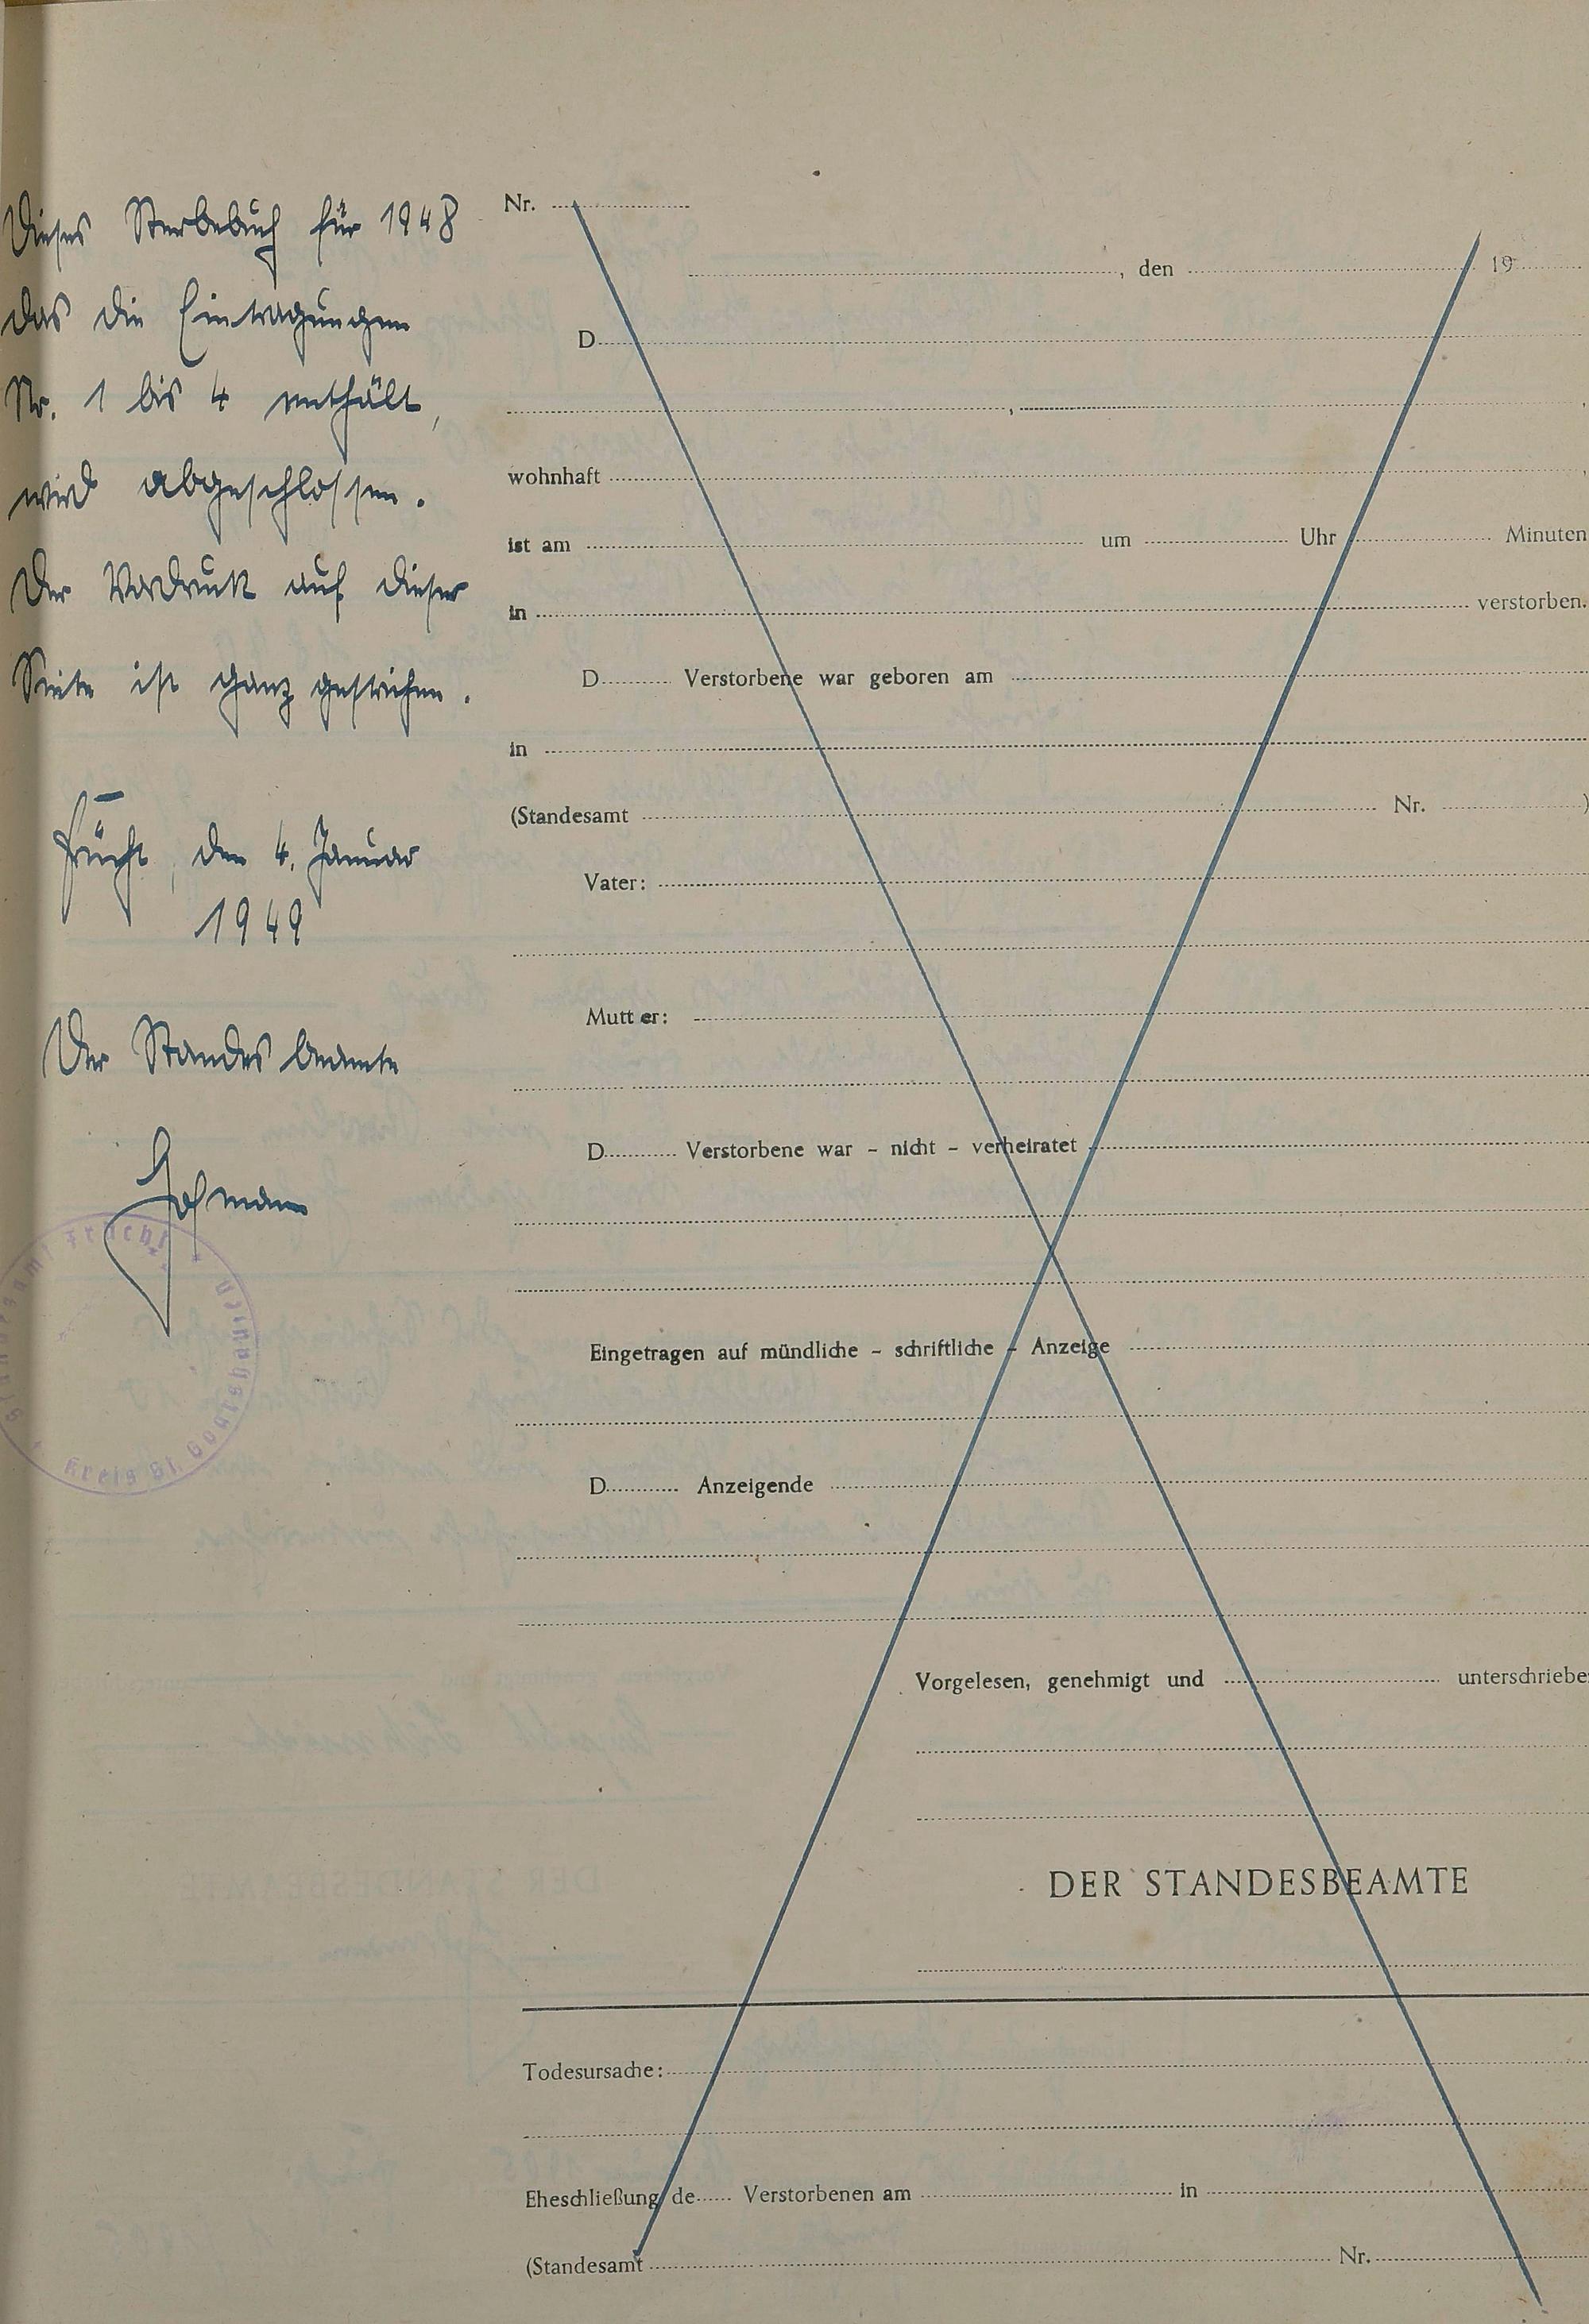 Dieses Sterbebuch für 1948
das die Eintragungen
Nr. 1 bis 4 enthält,
wird abgeschlossen.
Der Vordruck auf dieser
Seite ist ganz gestrichen.
Frücht, den 4. Januar
1949
Der Standesbeamte
Hofmann
Standesamt Frücht
Kreis St. Goarshausen
Nr.
, den 19
D
,
wohnhaft ,
ist am um Uhr Minuten
in verstorben.
D Verstorbene war geboren am
in
(Standesamt Nr. )
Vater:
Mutter:
D Verstorbene war - nicht - verheiratet
Eingetragen auf mündliche - schriftliche - Anzeige
D Anzeigende
Vorgelesen, genehmigt und unterschriebe
DER STANDESBEAMTE
Todesursache:
Eheschließung de Verstorbenen am in
(Standesamt Nr.